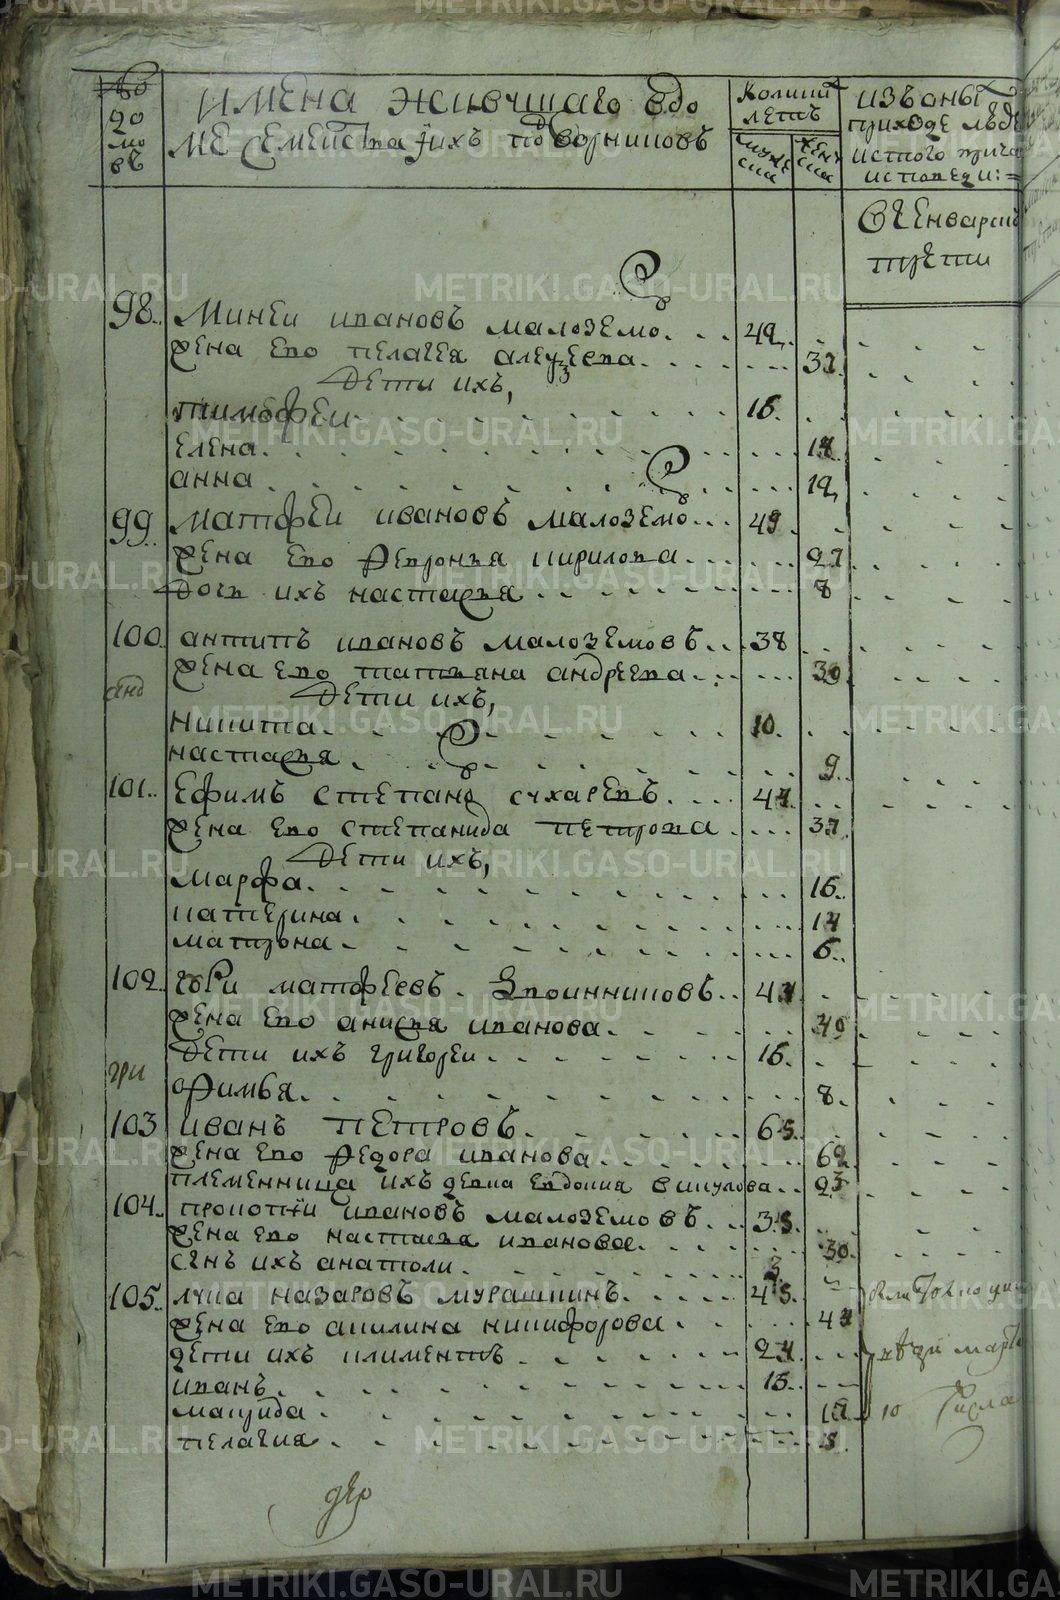 №
до
мо
въ
имена живущаго въ до
ме семейства ихъ подворниковъ
Количи
летъ
мужес
ска
женъ
ска
изъ оныхъ
приходе
истого прича
исповеди:
въ Генваря
трети
98. Миней ивановъ малоземо. 42
жена ево пелагея алеѯеева. 37
Дети ихъ,
тимофеи 16.
елена. 14
анна. 12
99. матфеи ивановъ малоземо 49
жена ево февронья кирилова. 27
Дочь ихъ настасья. 8
100. антипъ ивановъ малоземовъ. 38
жена ево татьяна андреева. 30
анд
Дети ихъ,
никита. 10.
настасья. 9
101. Ефимъ степано сухаревъ. 44
жена ево степанида петрова. 37
Дети ихъ,
марфа. 16
катерина. 14
матрона. 6
102. юри матфеевъ. Звоинниковъ. 44
жена ево анисья иванова. 40
Дети ихъ григореи. 16.
гри
офимья. 8.
103 иванъ петровъ. 65.
жена ево федора иванова. 62
племенница ихъ девка евдокия викулова. 23
104. прокопїи ивановъ малоземовъ. 35.
жена ево настасья иванова. 30
сынъ ихъ анатоли. 3
105. лука назаровъ мурашкинъ. 45.
жена ево акилина никифорова. 44
дети ихъ климентъ. 24
иванъ. 15.
макрида. 12
пелагия. 8
10 числа
дер